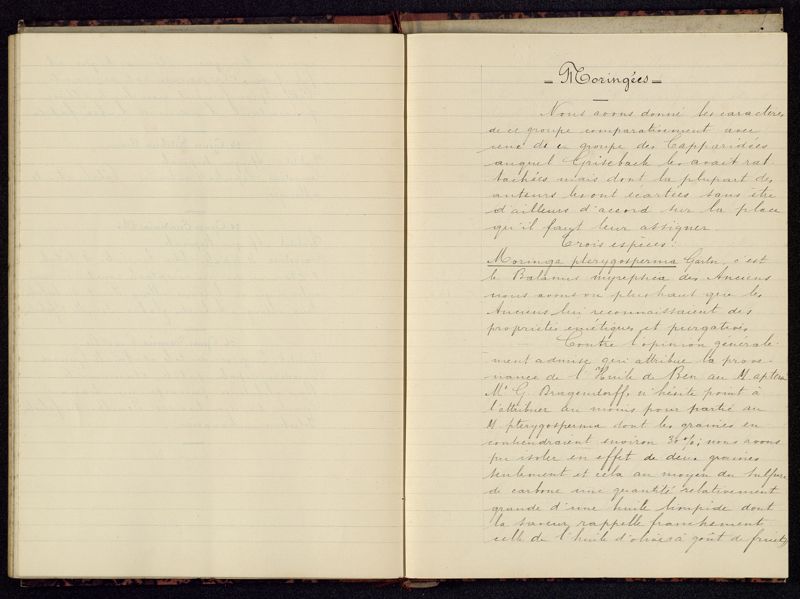 = Moringées =
Nous avons donné les caractères
de ce groupe comparativement avec
ceux de groupe des Capparidées
auquel Grisebach les avait rat-
tachées mais dont la plupart des
auteurs les ont écartées sans être
d'ailleurs d'accord sur la place
qu'il faut leur assigner.
Trois espèces:
Moringa pterygosperma Gærtn, c'est
le Balanus myrepsica des Anciens
nous avons vu plus haut que les
Anciens lui reconnaissaient des
propriétés émétiques et purgatives
Contre l'opinion générale-
ment admise qui attribue la prove-
nance de l'Huile de Ben au M. aptera
Mr G. Dragendorff, n'hésite point à
l'attribuer au moins pour partie au
M. pterygosperma dont les graines en
contiendraient environ 36 %; nous avons
pu isoler en effet de deux graines
seulement et cela au moyen du sulfure
de carbone une quantité relativement
grande d'une huile limpide dont
la saveur rappelle franchement
celle de l'huile d'olives à goût de fruits